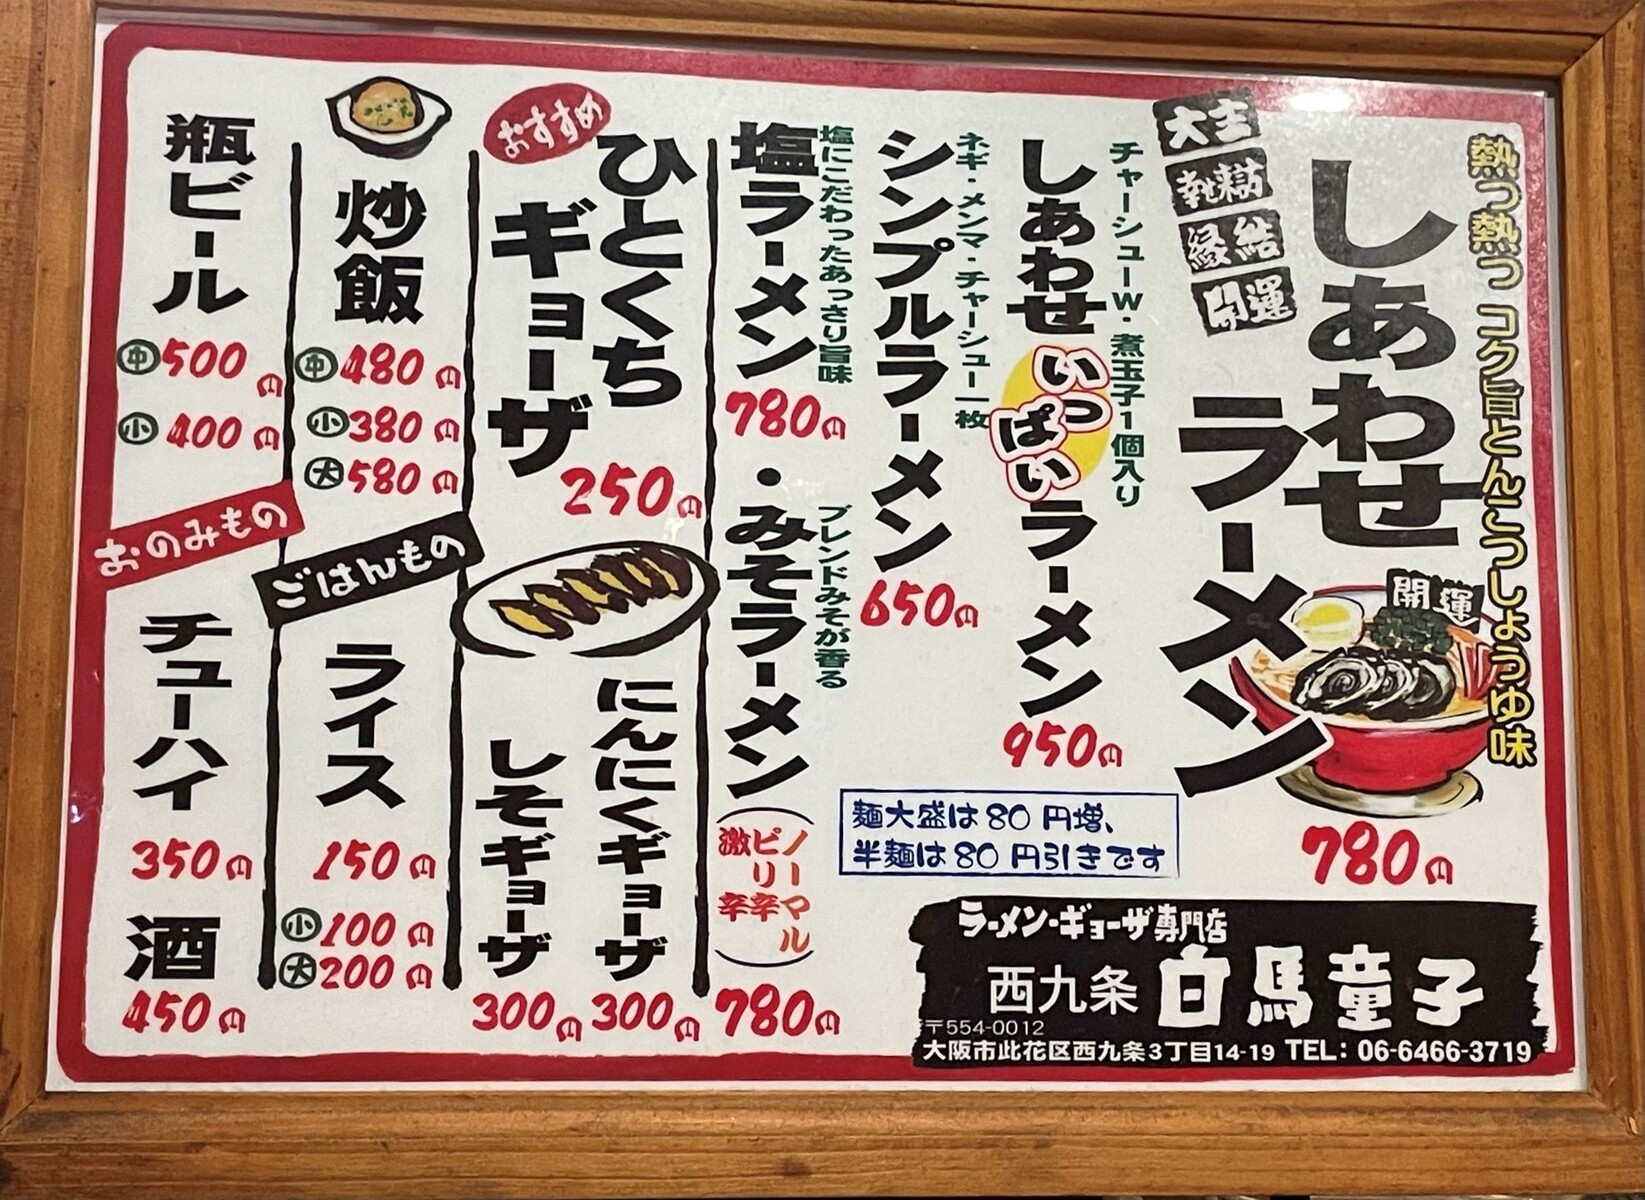 熱っ熱っ コク旨とんこつしょうゆ味
しあわせ
ラーメン
開運
780円
大主
縁結
開運
チャーシューW・煮玉子1個入り
しあわせいっぱいラーメン
950円
ネギ・メンマ・チャーシュー一枚
シンプルラーメン
650円
塩にこだわったあっさり旨味
塩ラーメン
780円
・
ブレンドみそが香る
みそラーメン
(ノーマル
ピリ辛
激辛)
780円
麺大盛は80円増、
半麺は80円引きです
おすすめ
ひとくち
ギョーザ
250円
にんにくギョーザ
300円
しそギョーザ
300円
炒飯
中480円
小380円
大580円
ごはんもの
ライス
150円
小100円
大200円
瓶ビール
中500円
小400円
おのみもの
チューハイ
350円
酒
450円
ラーメン・ギョーザ専門店
西九条 白馬童子
〒554-0012
大阪市此花区西九条3丁目14-19 TEL: 06-6466-3719